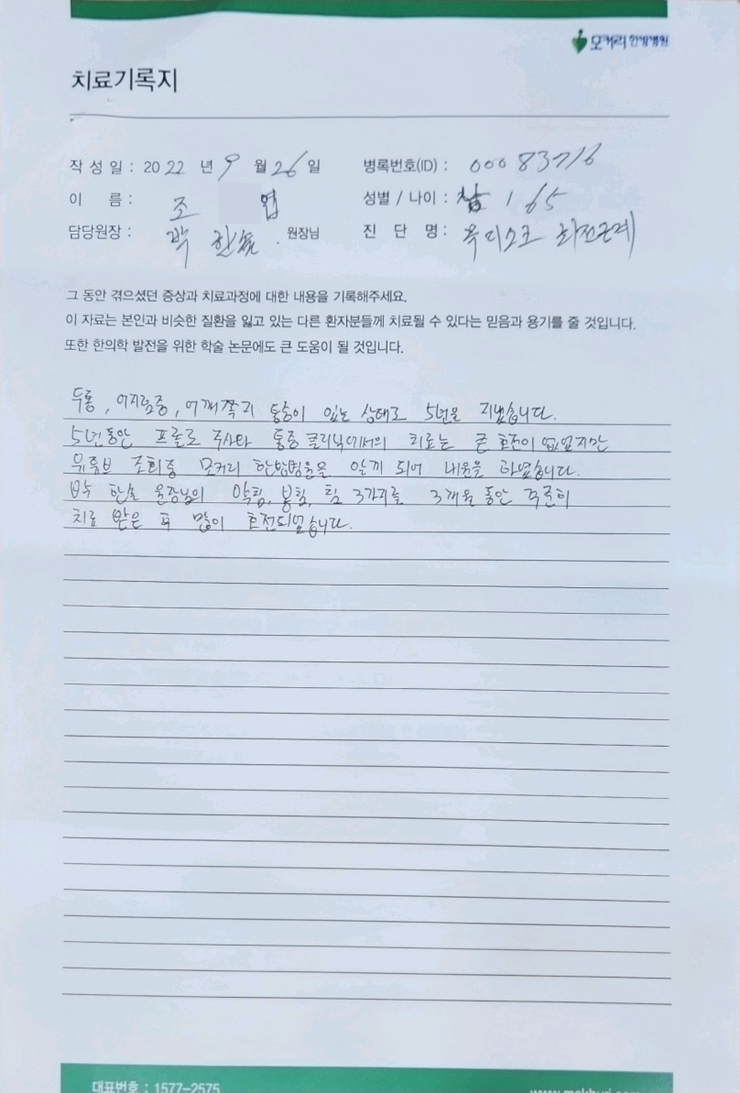 모커리 한방병원
치료기록지
작성일 : 2022 년 9 월 26 일 병록번호(ID) : 00083716
이 름 : 조 엽 성별 / 나이 : 남 / 65
담당원장 : 박 한솔 원장님 진 단 명 : 목디스크 회전근개
그 동안 겪으셨던 증상과 치료과정에 대한 내용을 기록해주세요.
이 자료는 본인과 비슷한 질환을 잃고 있는 다른 환자분들께 치료될 수 있다는 믿음과 용기를 줄 것입니다.
또한 한의학 발전을 위한 학술 논문에도 큰 도움이 될 것입니다.
두통, 어지럼증, 어깨쭉지 통증이 있는 상태로 5년을 지냈습니다.
5년동안 프롤로 주사와 통증 클리닉에서의 치료는 큰 호전이 없었지만
유튜브 조회중 모커리 한방병원을 알게 되어 내원을 하였습니다.
박 한솔 원장님의 약침, 봉침, 침 3가지를 3개월 동안 꾸준히
치료 받은 후 많이 호전되었습니다.
대표번호 : 1577-2575